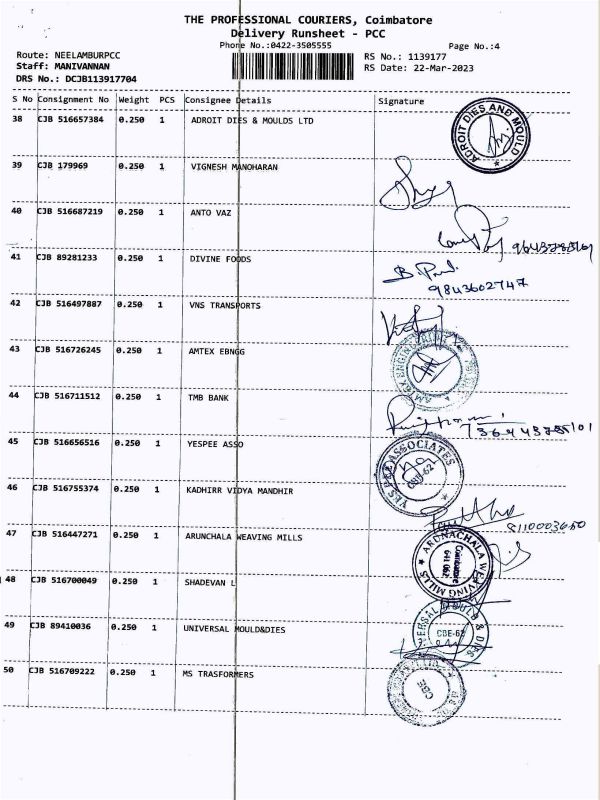 THE PROFESSIONAL COURIERS, Coimbatore
Delivery Runsheet - PCC
Phone No.:0422-3505555
Page No.:4
Route: NEELAMBURPCC
RS No.: 1139177
Staff: MANIVANNAN
RS Date: 22-Mar-2023
DRS No.: DCJB113917704
S No Consignment No Weight PCS Consignee Details Signature
38 CJB 516657384 0.250 1 ADROIT DIES & MOULDS LTD
ADROIT DIES AND MOULD
39 CJB 179969 0.250 1 VIGNESH MANOHARAN
40 CJB 516687219 0.250 1 ANTO VAZ
41 CJB 89281233 0.250 1 DIVINE FOODS
9843602747
42 CJB 516497887 0.250 1 VNS TRANSPORTS
43 CJB 516726245 0.250 1 AMTEX EBNGG
44 CJB 516711512 0.250 1 TMB BANK
45 CJB 516656516 0.250 1 YESPEE ASSO
YES PEE ASSOCIATES
CBE-62
46 CJB 516755374 0.250 1 KADHIRR VIDYA MANDHIR
8110003650
47 CJB 516447271 0.250 1 ARUNCHALA WEAVING MILLS
ARUNACHALA WEAVING MILLS
Coimbatore
641 062
48 CJB 516700049 0.250 1 SHADEVAN L
49 CJB 89410036 0.250 1 UNIVERSAL MOULD&DIES
UNIVERSAL MOULD & DIES
CBE-62
50 CJB 516709222 0.250 1 MS TRASFORMERS
CBE